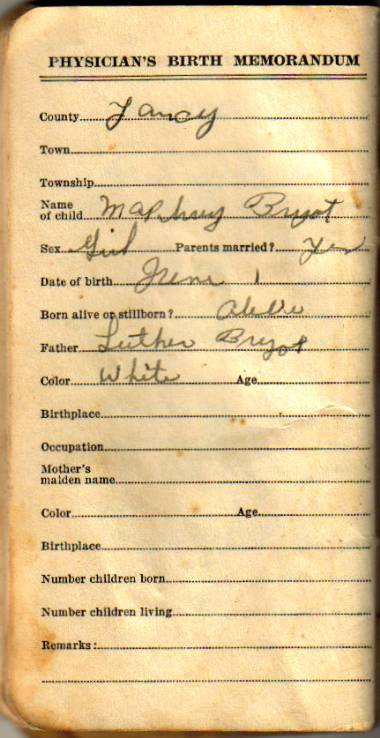 PHYSICIAN'S BIRTH MEMORANDUM
County Yancy
Town
Township
Name
of child
Sex Girl Parents married? Yes
Date of birth June 1
Born alive or stillborn? alive
Father Luther
Color White Age
Birthplace
Occupation
Mother's
maiden name
Color Age
Birthplace
Number children born
Number children living
Remarks: